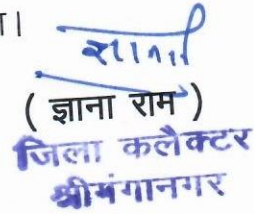 ा।
( ज्ञाना राम )
जिला कलैक्टर
श्रीगंगानगर